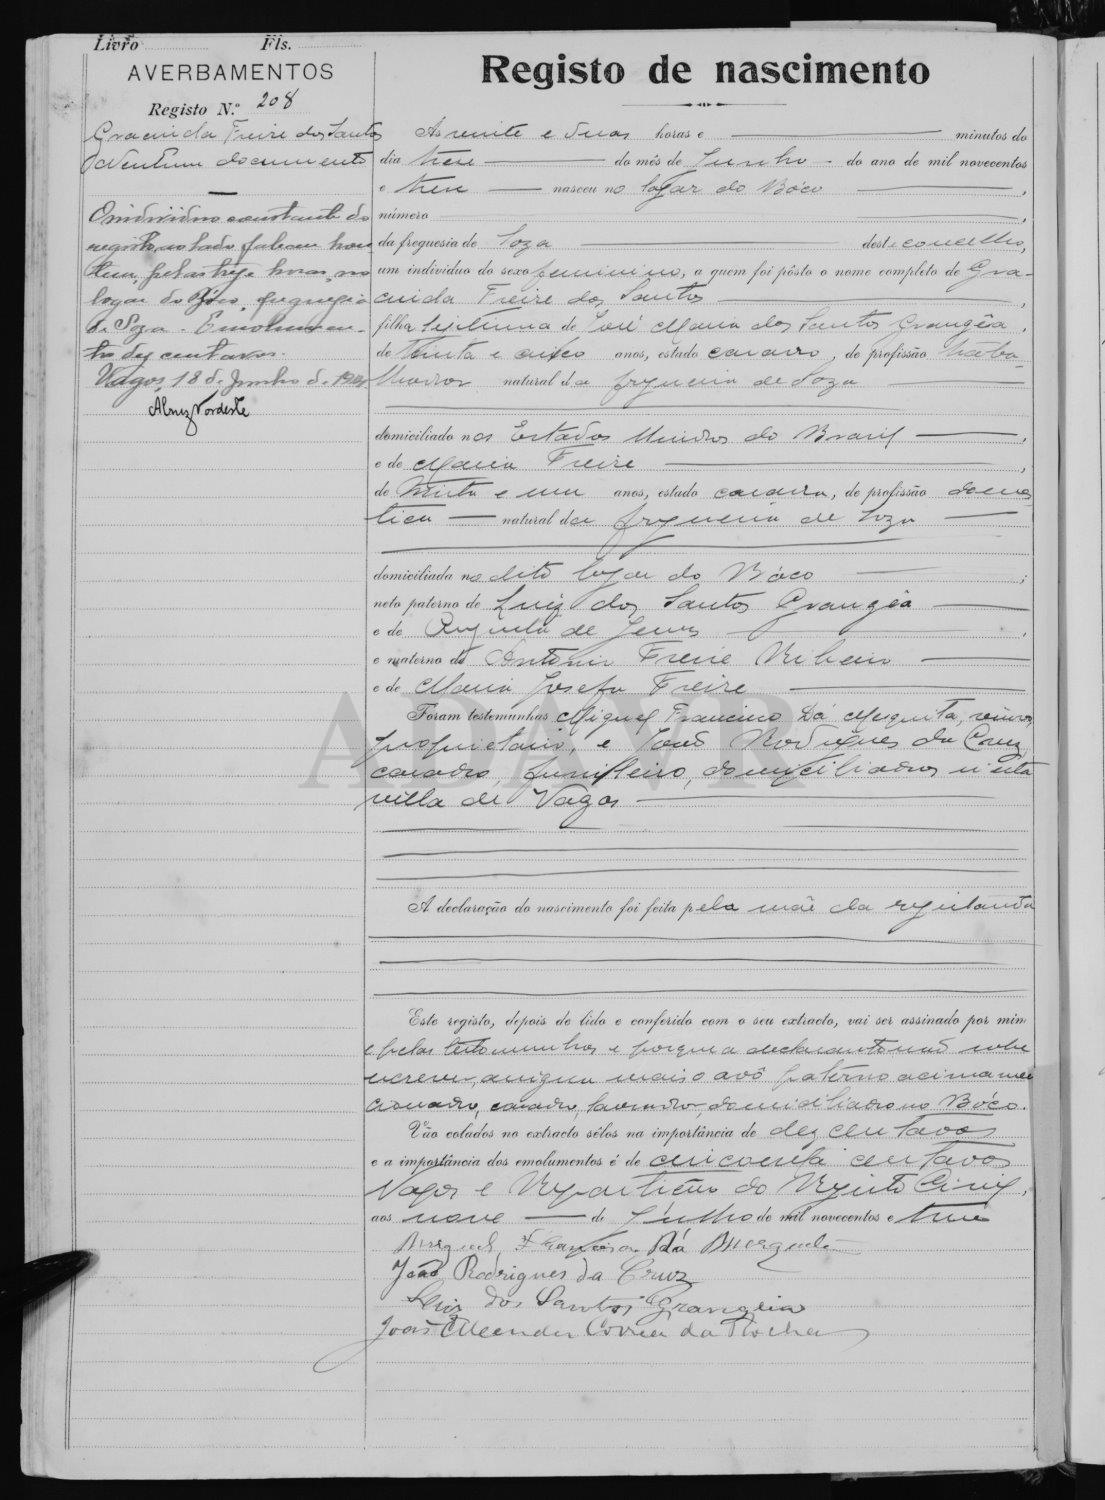 Livro Fls.
AVERBAMENTOS
Registo N.º 208
Gracinda Freire dos Santos
documento
O individuo constante do
registo ao lado faleceu hon
tem, pelas treze horas, no
logar do Bôco, freguezia
de Soza. Emolumen-
tos dez centavos.
Vagos, 18 de Junho de
Registo de nascimento
As vinte e duas horas e minutos do
dia treze do mês de Junho do ano de mil novecentos
e treze nasceu no logar do Bôco,
número,
da freguesia de Soza deste concelho,
um individuo do sexo feminino, a quem foi pôsto o nome completo de Gra-
cinda Freire dos Santos,
filha legitima de José Maria dos Santos Grangêa,
de trinta e cinco anos, estado casado, de profissão traba-
lhador natural da freguesia de Soza
domiciliado nos Estados Unidos do Brasil,
e de Maria Freire,
de trinta e um anos, estado casada, de profissão domes
tica natural da freguesia de Soza
domiciliada no dito logar do Bôco;
neto paterno de Luiz dos Santos Grangêa
e de de Jesus,
e materno de Antonio Freire Ribeiro
e de Maria Josefa Freire
Foram testemunhas Miguel Francisco Dá Mesquita, viuvo,
proprietario, e João Rodrigues da Cruz
casado, funileiro, domiciliados n'esta
villa de Vagos
A declaração do nascimento foi feita pela mãe da registanda
Este registo, depois de lido e conferido com o seu extracto, vai ser assinado por mim
e pelas testemunhas e porque a declarante não sabe
escrever, assigna mais o avô paterno acima men
cionado, casado, lavrador, domiciliado no Bôco.
Vão colados no extracto sêlos na importância de dez centavos
e a importância dos emolumentos é de cincoenta centavos
Vagos e Repartição do Registo Civil,
aos nove de Julho de mil novecentos e treze
Miguel Francisco Dá Mesquita
João Rodrigues da Cruz
Luiz dos Santos Grangeia
João Mendes Correa da Rocha
ADAVR